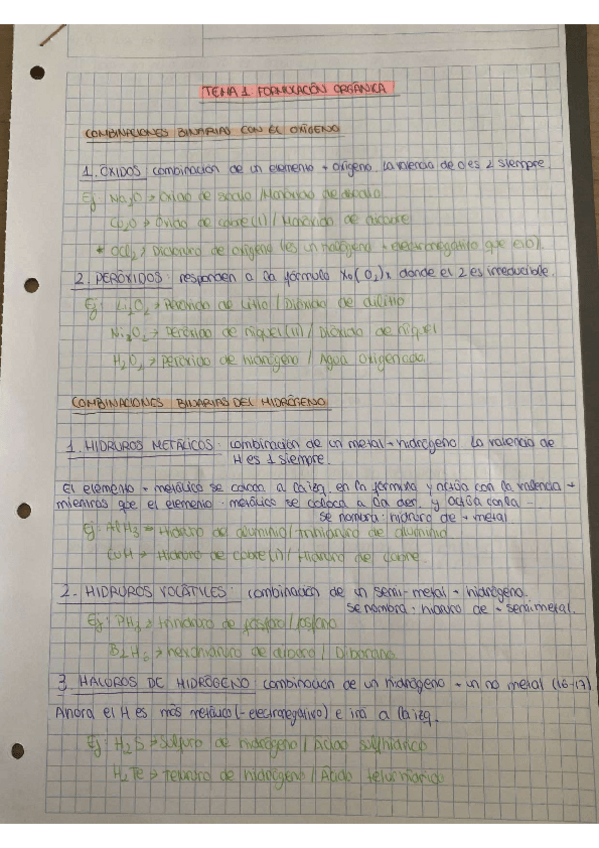 TEMA 1. FORMULACIÓN ORGÁNICA
COMBINACIONES BINARIAS CON EL OXÍGENO
1. ÓXIDOS combinación de un elemento + oxígeno. La valencia de O es 2 siempre.
Ej: Na2O → Óxido de sodio / Monóxido de disodio
Cu2O → Óxido de cobre (I) / Monóxido de dicobre
* OCl2 → Dicloruro de oxígeno (es un halógeno + electronegativo que el O).
2. PERÓXIDOS: responden a la fórmula X2(O2)x donde el 2 es irreducible.
Ej: Li2O2 → Peróxido de litio / Dióxido de dilitio
Ni2O2 → Peróxido de níquel (II) / Dióxido de níquel
H2O2 → Peróxido de hidrógeno / Agua oxigenada
COMBINACIONES BINARIAS DEL HIDRÓGENO
1. HIDRUROS METÁLICOS: combinación de un metal + hidrógeno. La valencia de
H es 1 siempre.
El elemento + metálico se coloca a la izq. en la fórmula y actúa con la valencia +
mientras que el elemento - metálico se coloca a la der. y actúa con la -
Se nombra: hidruro de + metal
Ej: AlH3 → Hidruro de aluminio / Trihidruro de aluminio
CuH → Hidruro de cobre (I) / Hidruro de cobre
2. HIDRUROS VOLÁTILES: combinación de un semi-metal + hidrógeno.
Se nombra: hidruro de + semimetal.
Ej: PH3 → trihidruro de fósforo / fosfano
B2H6 → hexahidruro de diboro / Diborano
3. HALUROS DE HIDRÓGENO combinación de un hidrógeno + un no metal (16-17)
Ahora el H es más metálico (- electronegativo) e irá a la izq.
Ej: H2S → Sulfuro de hidrógeno / Ácido sulfhídrico
H2Te → teluro de hidrógeno / Ácido telurhídrico